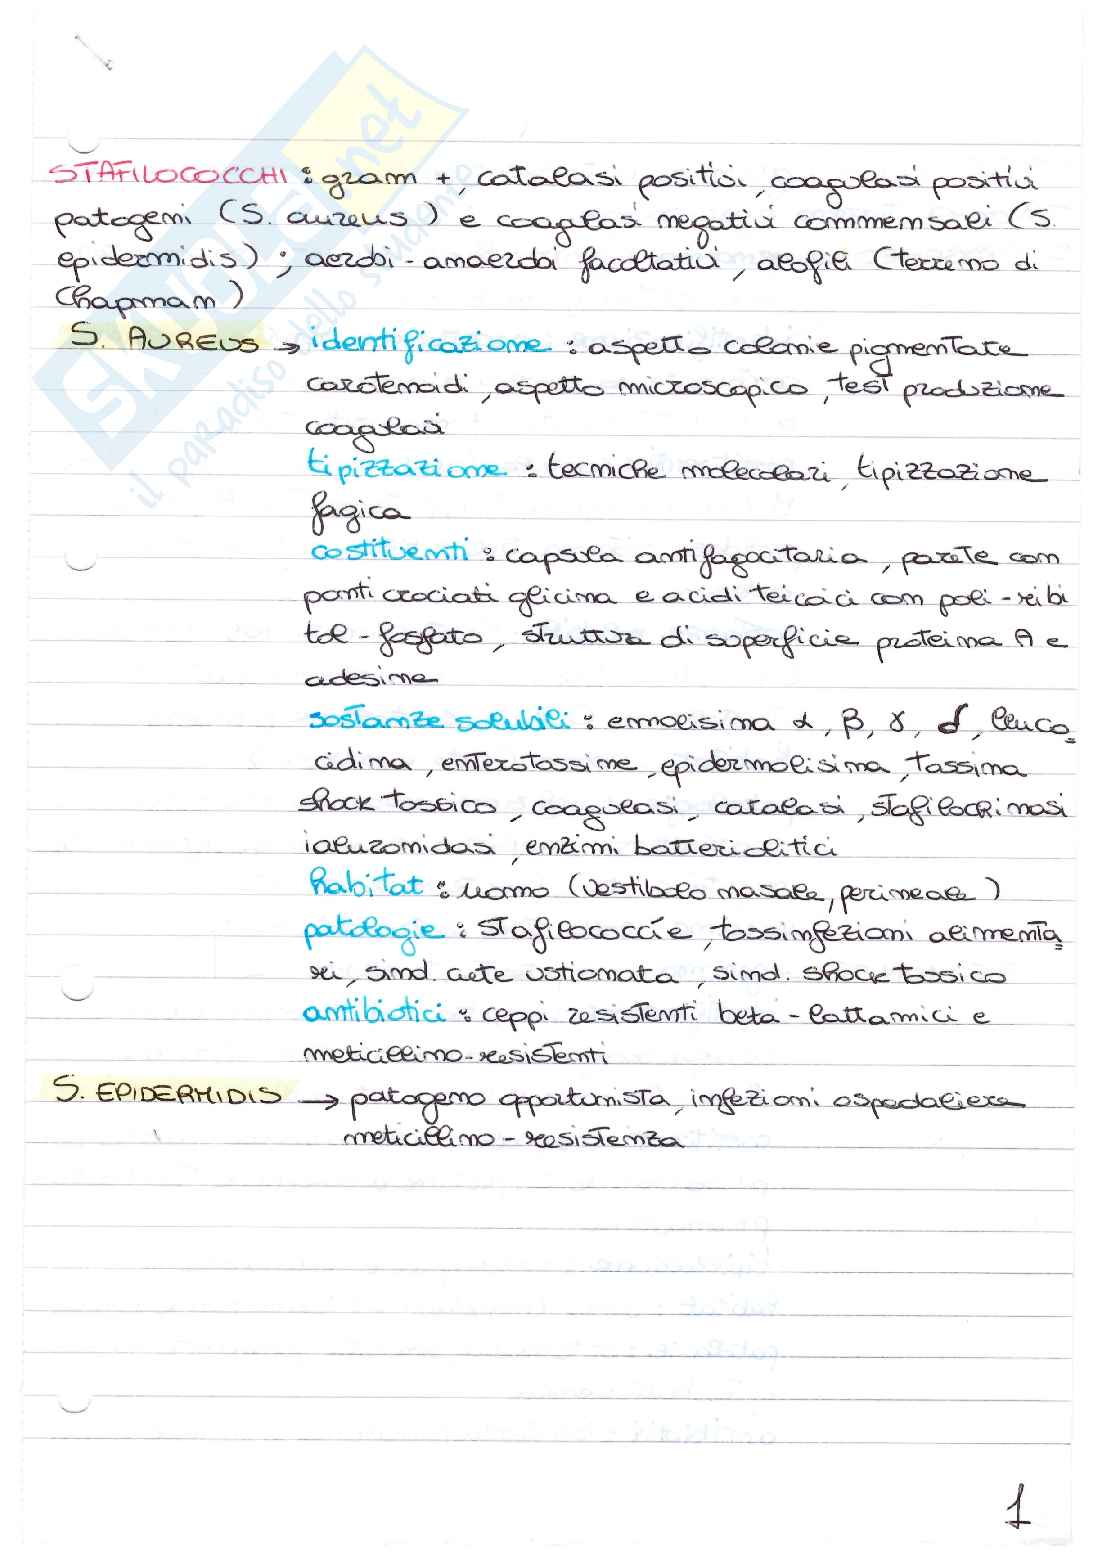 SKUOLA.net
il paradiso dello studente
STAFILOCOCCHI : gram +, catalasi positivi, coagulasi positivi
patogeni (S. aureus) e coaglasi negativi commensali (S.
epidermidis) ; aerobi-anaerobi facoltativi, alofili (terreno di
Chapman)
S. AUREUS → identificazione : aspetto colonie pigmentate
carotenoidi, aspetto microscopico, test produzione
coagulasi
tipizzazione : tecniche molecolari, tipizzazione
fagica
costituenti : capsula antifagocitaria, parete con
ponti crociati glicina e acidi teicoici con poli-ribi
tol-fosfato, struttura di superficie proteina A e
adesine
sostanze solubili : emolisina α, β, γ, δ, leuco
cidina, enterotossine, epidermolisina, tossina
shock tossico, coagulasi, catalasi, stafilochinasi
ialuronidasi, enzimi batteriolitici
habitat : uomo (vestibolo nasale, perineale)
patologie : stafilococcie, tossinfezioni alimenta
ri, sind. cute ustionata, sind. shock tossico
antibiotici : ceppi resistenti beta-lattamici e
meticillino-resistenti
S. EPIDERMIDIS → patogeno opportunista, infezioni ospedaliere
meticillino-resistenza
1